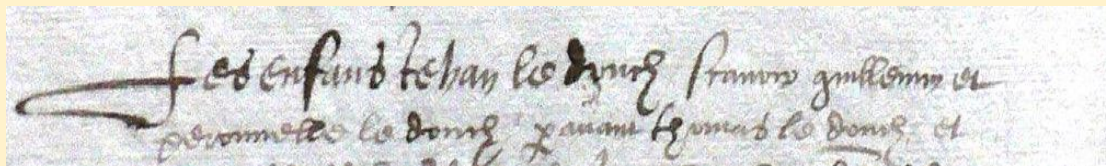 Les enfans Jehan le douch scavoir guillemin et
peronnelle le douch p avant thomas le douch et